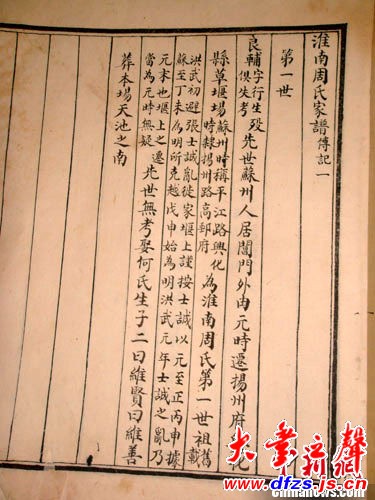 淮南周氏家譜傳記一
第一世
良輔字行生歿俱失考先世蘇州人居閶門外由元時遷揚州府化
縣草堰場蘇州時稱平江路興化時隸揚州路高郵府為淮南周氏第一世祖舊載
洪武初避張士誠亂徙家堰上謹按士誠以元至正丙申據
蘇至丁未為明所克越戊申始為明洪武元年士誠之亂乃
元末也堰上之遷當為元時無疑先世無考娶何氏生子二曰維賢曰維善
葬本場天池之南
www.dfzs.js.cn